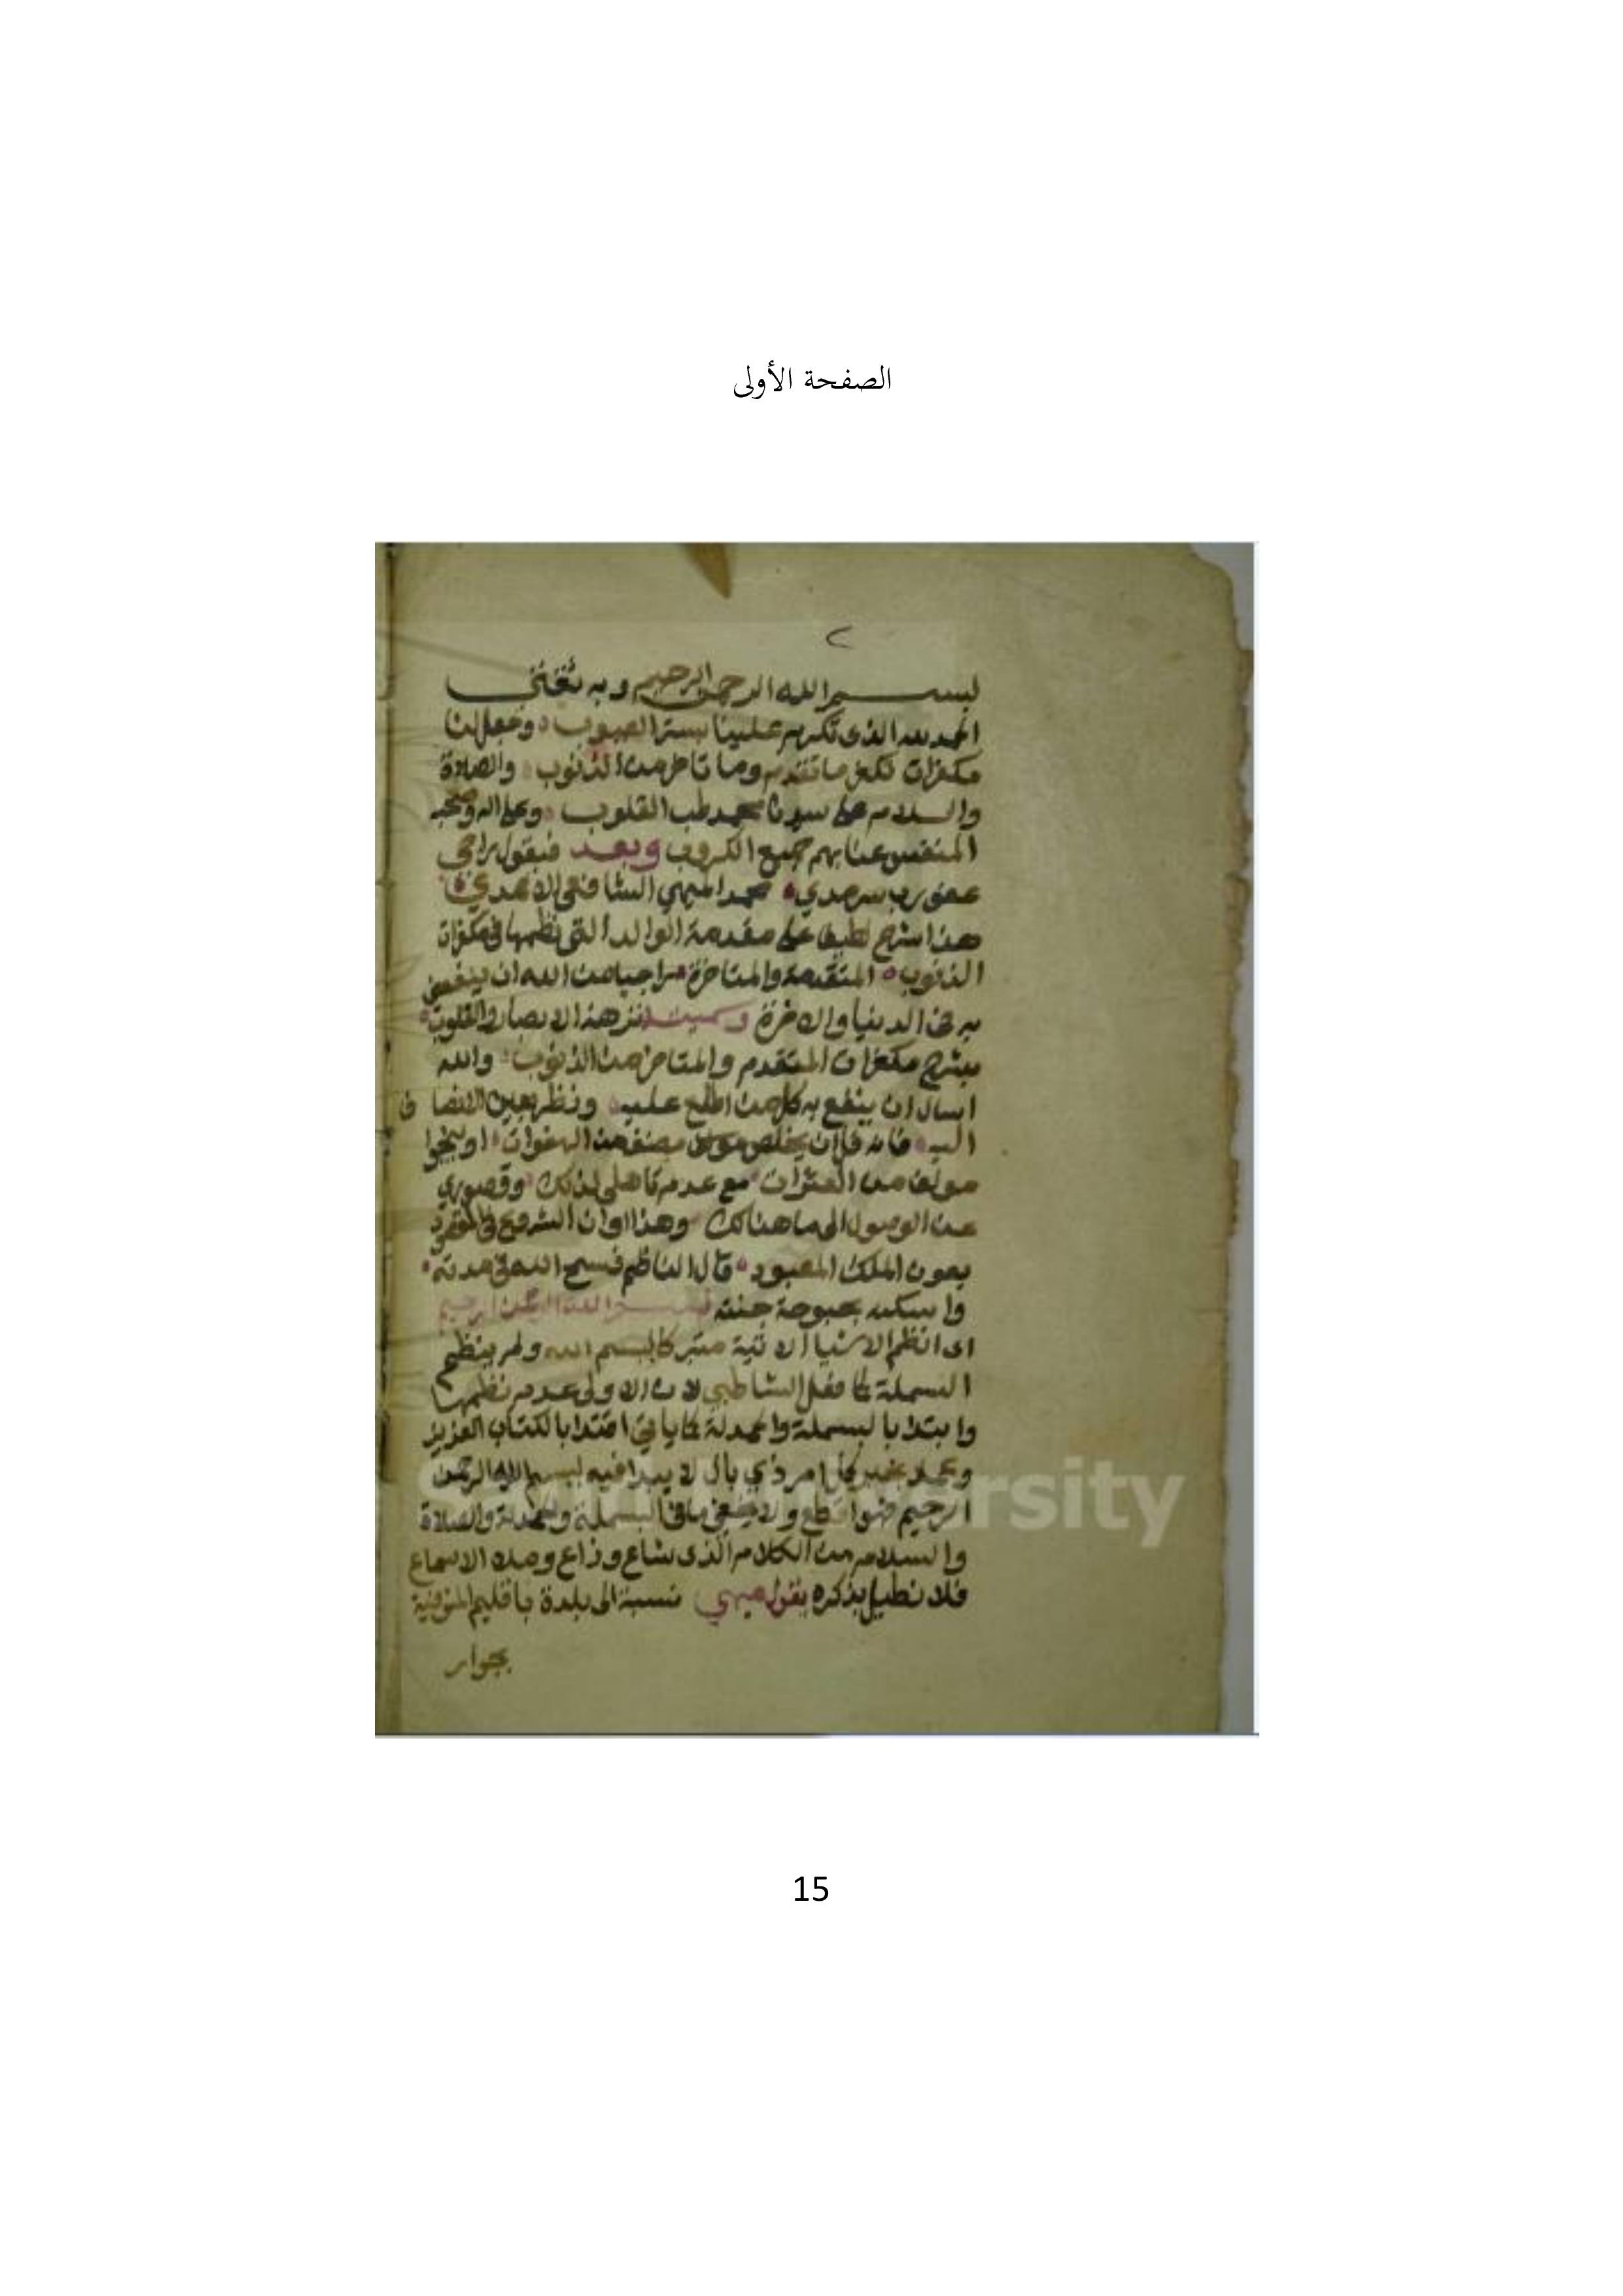 الصفحة الأولى
٢
بسم الله الرحمن الرحيم وبه ثقتي
الحمد لله الذي تكرم علينا بستر العيوب وجعل لنا
مكفرات تكفر ما تقدم وما تاخر من الذنوب والصلاة
والسلام على سيدنا محمد طب القلوب وعلى اله وصحبه
المنفس عنا بهم جميع الكروب وبعد فيقول راجي
عفو رب سرمدي محمد الميهي الشافعي الاحمدي
هذا شرح لطيف على مقدمة الوالد التي نظمها في مكفرات
الذنوب المتقدمة والمتاخرة راجيا من الله ان ينفعني
به في الدنيا والاخرة وسميته نزهة الابصار والقلوب
بشرح مكفرات المتقدم والمتاخر من الذنوب والله
اسال ان ينفع به كل من اطلع عليه ونظر بعين الانصاف
اليه فانه قل ان يخلص مصنف من الهفوات او ينجوا
مولف من العثرات مع عدم تاهلي لذلك وقصوري
عن الوصول الى ما هنالك وهذا اوان الشروع في المقصود
بعون الملك المعبود قال الناظم فسح الله في مدته
واسكنه بحبوحة جنته بسم الله الرحمن الرحيم
اى انظم الاشيا الاتية متبركا بسم الله ولم ينظم
البسملة كما فعل الشاطبي لان الاولى عدم نظمها
وابتدا بالبسملة والحمدلة كما ياتي اقتدا بالكتاب العزيز
وعملا بخبر كل امر ذي بال لا يبدا فيه ببسم الله الرحمن
الرحيم فهو اقطع ولا يخفى ما في البسملة والحمدلة والصلاة
والسلام من الكلام الذى شاع وذاع وملا الاسماع
فلا نطيل بذكره يقول ميهي نسبة الى بلدة باقليم المنوفية
بجوار
ersity
15